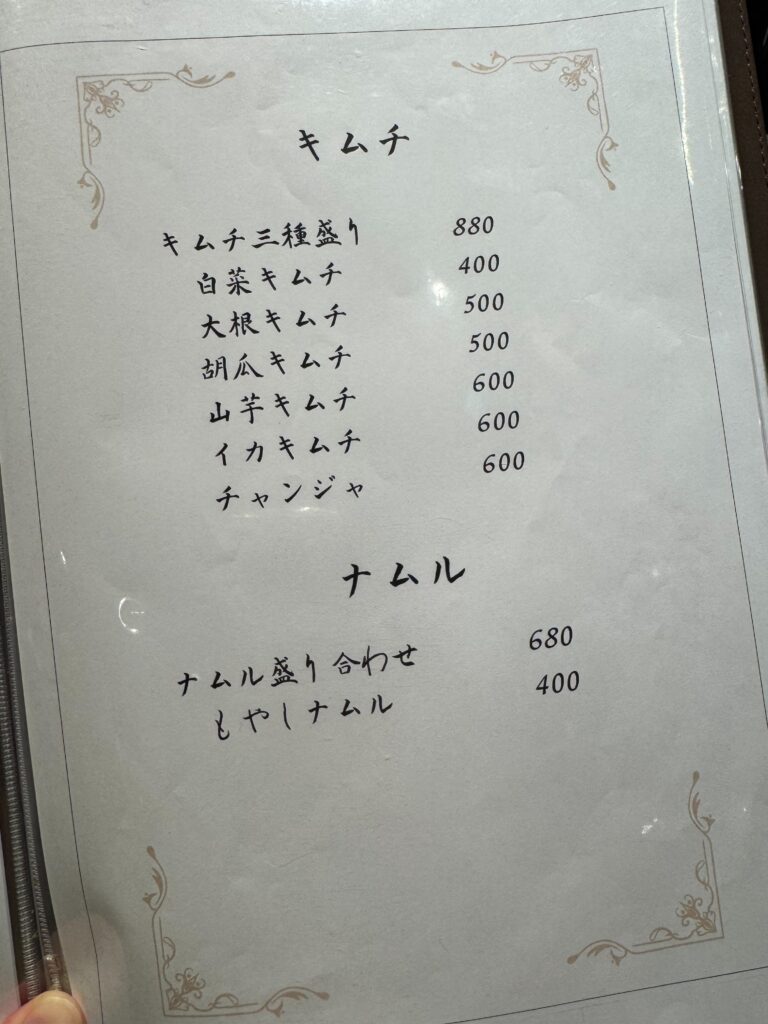 キムチ
キムチ三種盛り 880
白菜キムチ 400
大根キムチ 500
胡瓜キムチ 500
山芋キムチ 600
イカキムチ 600
チャンジャ 600
ナムル
ナムル盛り合わせ 680
もやしナムル 400